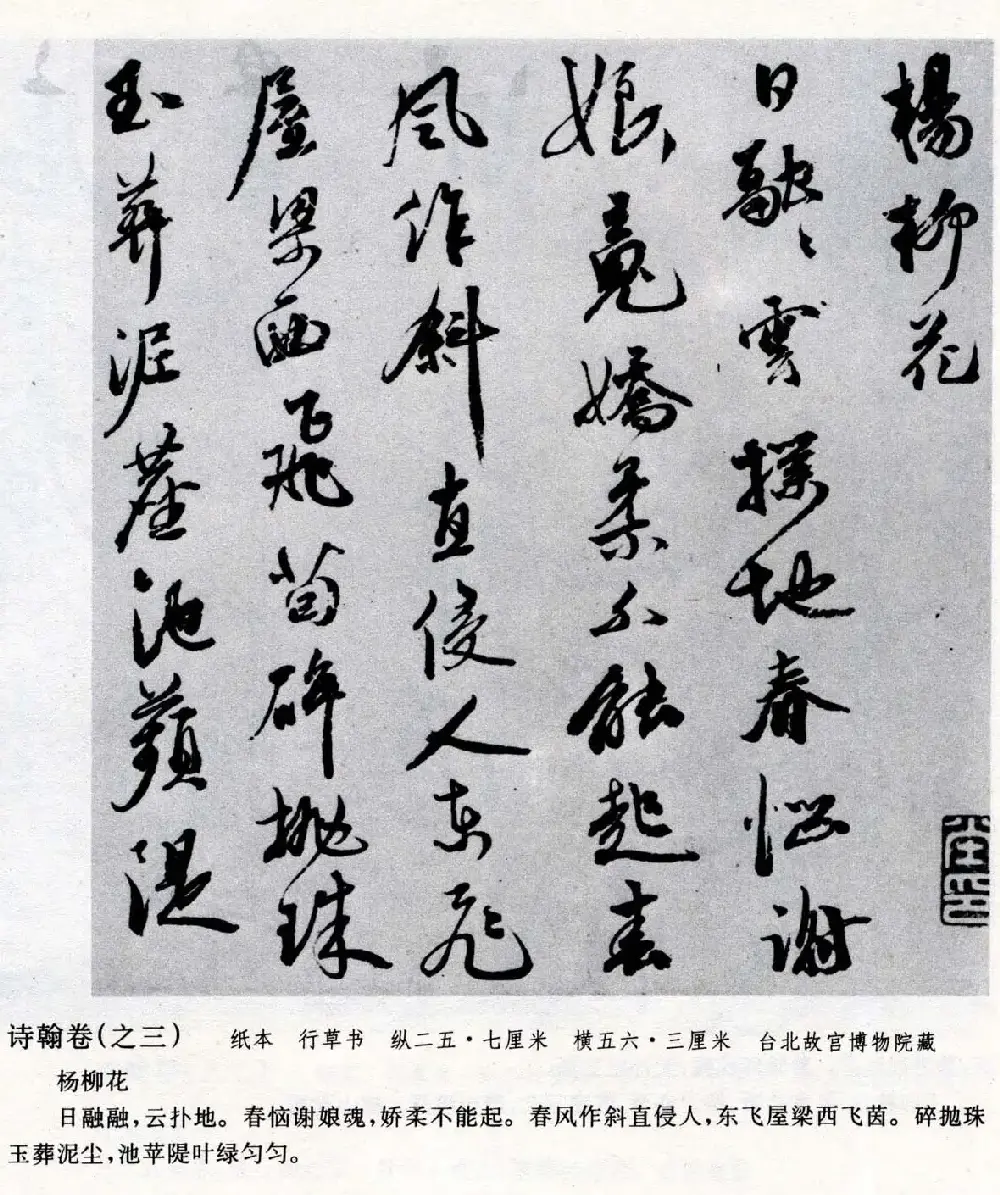 楊柳花
日融〻雲撲地春惱謝
娘魂嬌柔不能起春
風作斜直侵人東飛
屋梁西飛茵碎抛珠
玉葬泥塵池蘋隄
诗翰卷(之三) 纸本 行草书 纵二五·七厘米 横五六·三厘米 台北故宫博物院藏
杨柳花
日融融,云扑地。春恼谢娘魂,娇柔不能起。春风作斜直侵人,东飞屋梁西飞茵。碎抛珠
玉葬泥尘,池苹隄叶绿匀匀。